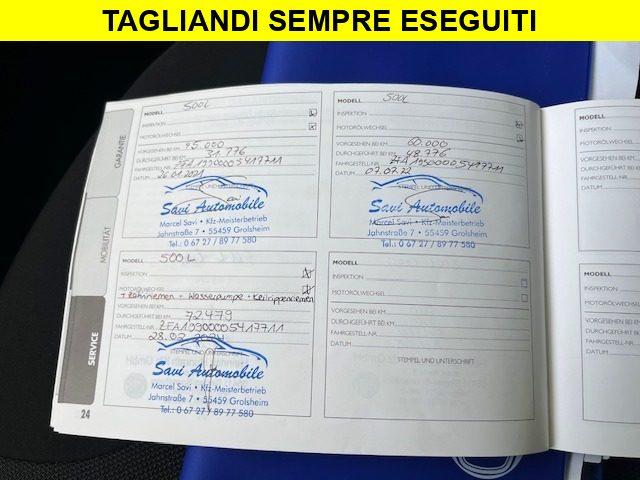 TAGLIANDI SEMPRE ESEGUITI
GARANTIE
MOBILITÄT
SERVICE
24
MODELL 500L
INSPEKTION
MOTORÖLWECHSEL
VORGESEHEN BEI KM 45.000
DURCHGEFÜHRT BEI KM 31.776
FAHRGESTELL-NR. ZFA19900005417711
DATUM 26.01.2021
STEMPEL UND UNTERSCHRIFT
Savi Automobile
Marcel Savi • Kfz-Meisterbetrieb
Jahnstraße 7 • 55459 Grolsheim
Tel.: 0 67 27 / 89 77 580
MODELL 500L
INSPEKTION
MOTORÖLWECHSEL
VORGESEHEN BEI KM 60.000
DURCHGEFÜHRT BEI KM 48.776
FAHRGESTELL-NR. ZFA19900005417711
DATUM 07.07.22
STEMPEL UND UNTERSCHRIFT
Savi Automobile
Marcel Savi • Kfz-Meisterbetrieb
Jahnstraße 7 • 55459 Grolsheim
Tel.: 0 67 27 / 89 77 580
MODELL 500L
INSPEKTION
MOTORÖLWECHSEL
+ Zahnriemen + Wasserpumpe + Keilrippenriemen
VORGESEHEN BEI KM
DURCHGEFÜHRT BEI KM 72479
FAHRGESTELL-NR. ZFA19900005417711
DATUM 28.05.2024
STEMPEL UND UNTERSCHRIFT
Savi Automobile
Marcel Savi • Kfz-Meisterbetrieb
Jahnstraße 7 • 55459 Grolsheim
Tel.: 0 67 27 / 89 77 580
MODELL
INSPEKTION
MOTORÖLWECHSEL
VORGESEHEN BEI KM
DURCHGEFÜHRT BEI KM
FAHRGESTELL-NR.
DATUM
STEMPEL UND UNTERSCHRIFT
MODELL
INSPEKTION
MOTORÖLWECHSEL
VORGESEHEN BEI
DURCHGEFÜHRT
FAHRGESTELL-NR
DATUM
MODELL
INSPEKTION
MOTORÖLWECH
VORGESEHEN
DURCHGEFÜHR
FAHRGESTELL
DATUM